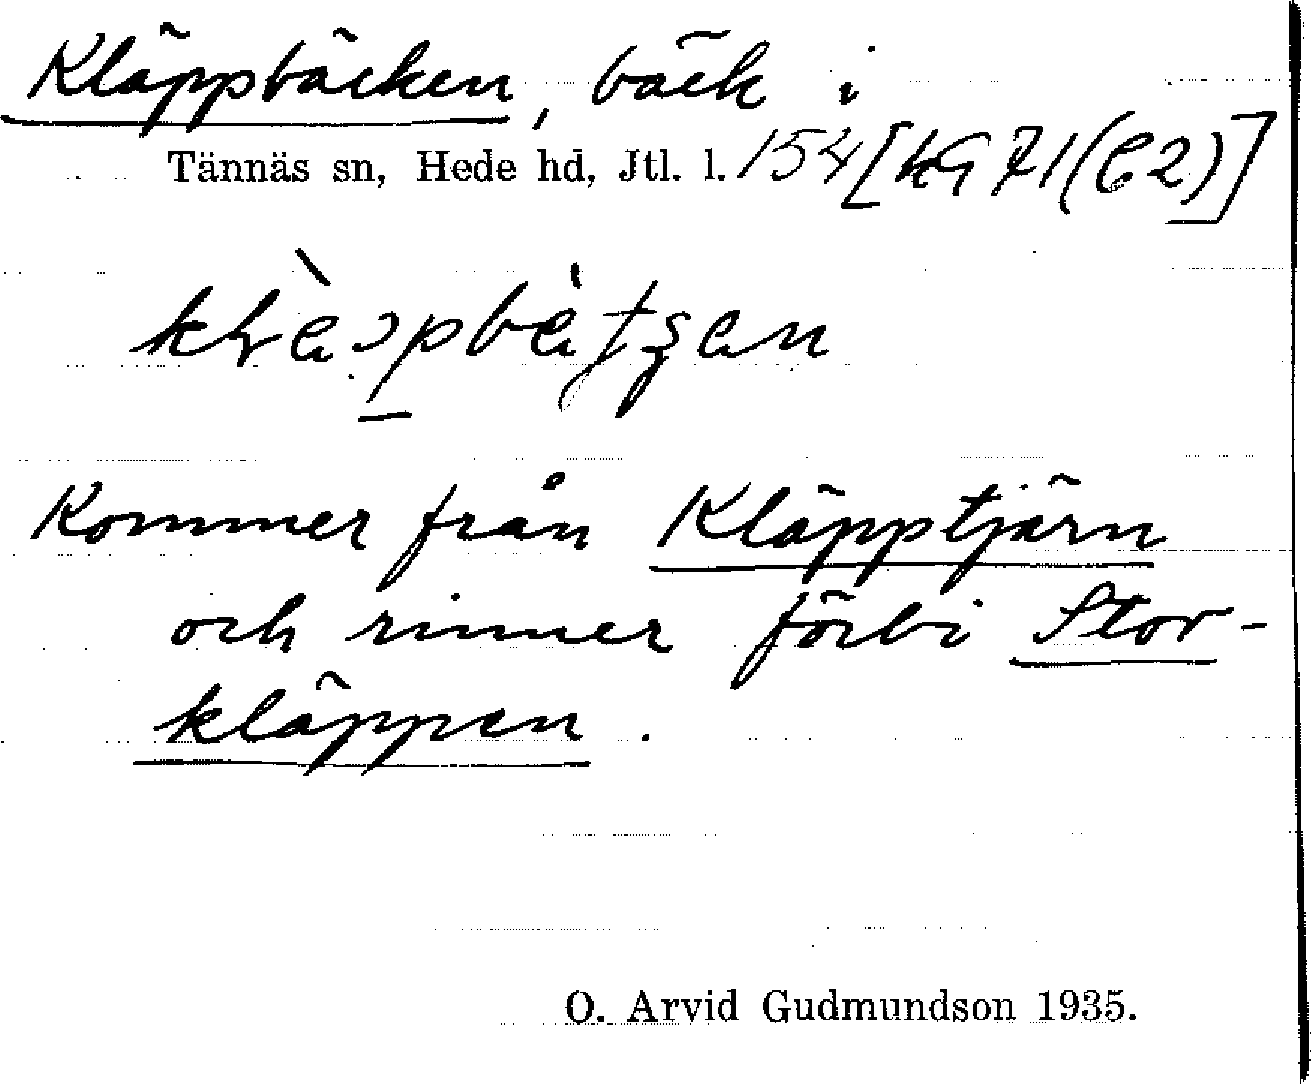 Kläppbäcken, bäck i
Tännäs sn, Hede hd, Jtl. l. 154 [kG 71 (C2)]
Kommer från Kläpptjärn
och rinner förbi Stor-
kläppen.
O. Arvid Gudmundson 1935.